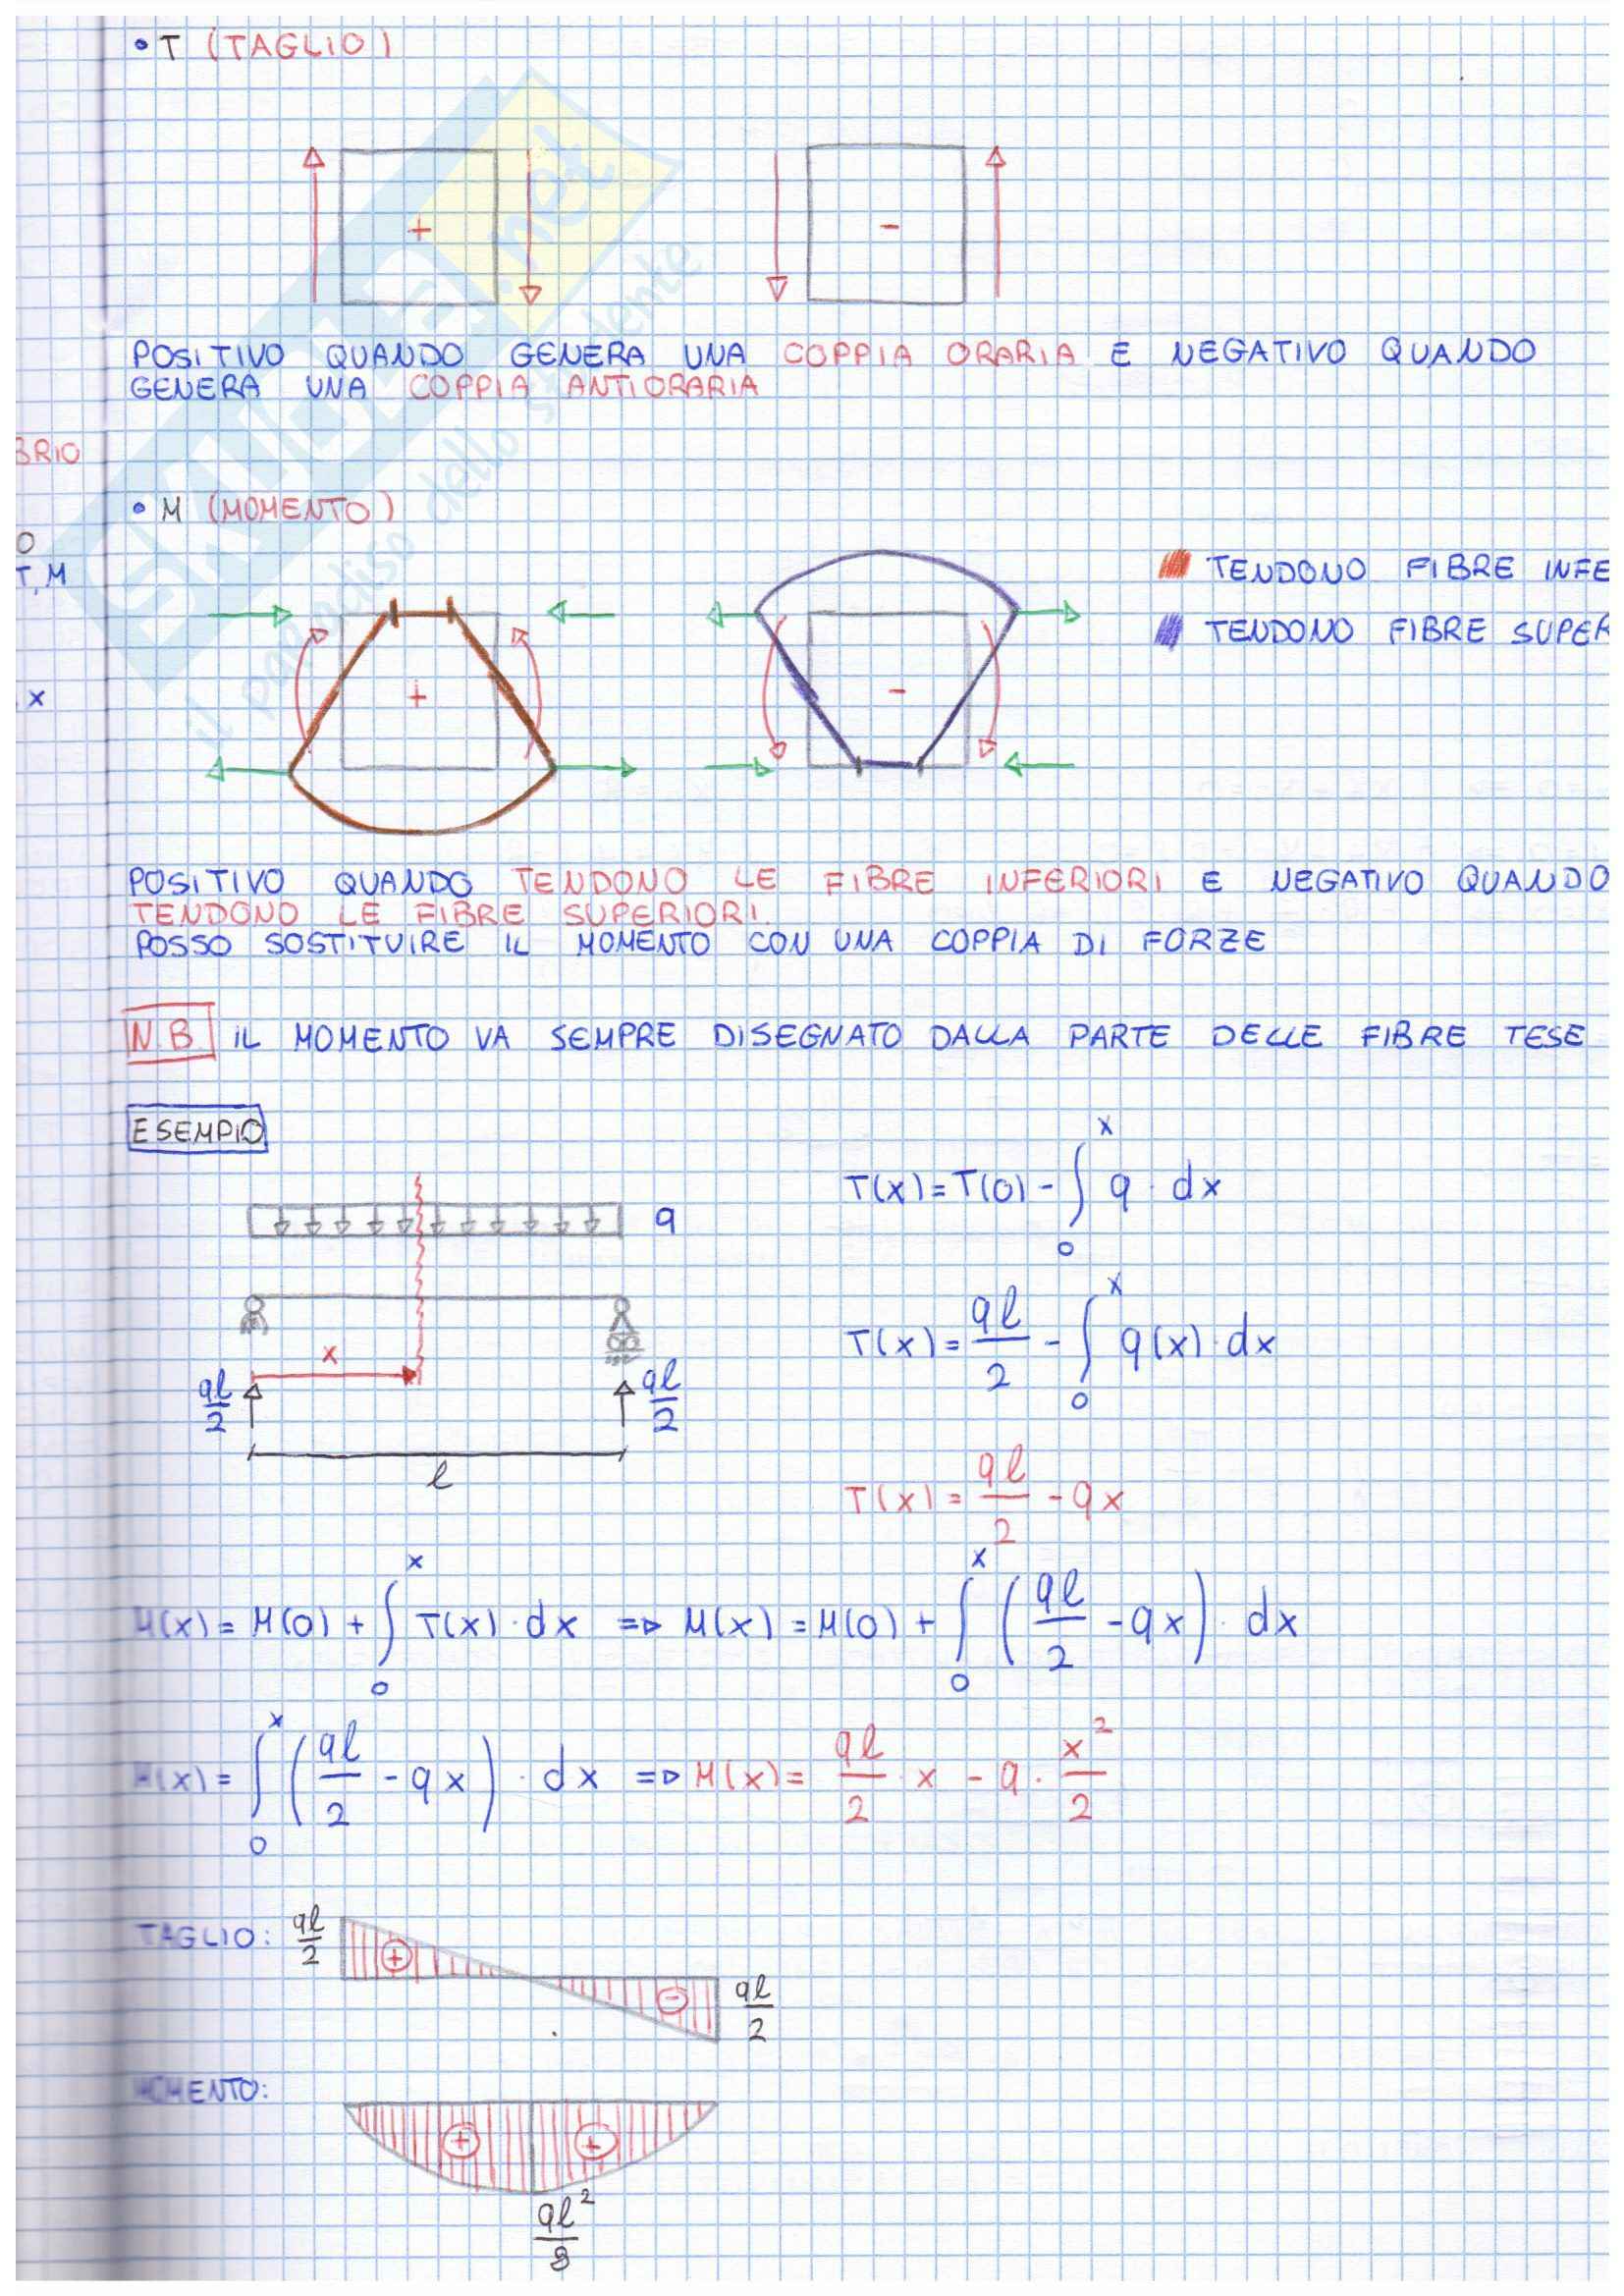 • T (TAGLIO)
+
-
POSITIVO QUANDO GENERA UNA COPPIA ORARIA E NEGATIVO QUANDO
GENERA UNA COPPIA ANTIORARIA
BRIO
• M (MOMENTO)
O
T, M
x
TENDONO FIBRE INFE
TENDONO FIBRE SUPER
+
-
POSITIVO QUANDO TENDONO LE FIBRE INFERIORI E NEGATIVO QUANDO
TENDONO LE FIBRE SUPERIORI.
POSSO SOSTITUIRE IL MOMENTO CON UNA COPPIA DI FORZE
N.B. IL MOMENTO VA SEMPRE DISEGNATO DALLA PARTE DELLE FIBRE TESE
ESEMPIO
q
x
ql/2
ql/2
l
T(x) = T(0) - ∫₀ˣ q · dx
T(x) = ql/2 - ∫₀ˣ q(x) · dx
T(x) = ql/2 - qx
M(x) = M(0) + ∫₀ˣ T(x) · dx => M(x) = M(0) + ∫₀ˣ (ql/2 - qx) · dx
M(x) = ∫₀ˣ (ql/2 - qx) · dx => M(x) = ql/2 · x - q · x²/2
TAGLIO: ql/2
+
-
ql/2
MOMENTO:
+ +
ql²/8
SKUOLA.net
il paradiso dello studente